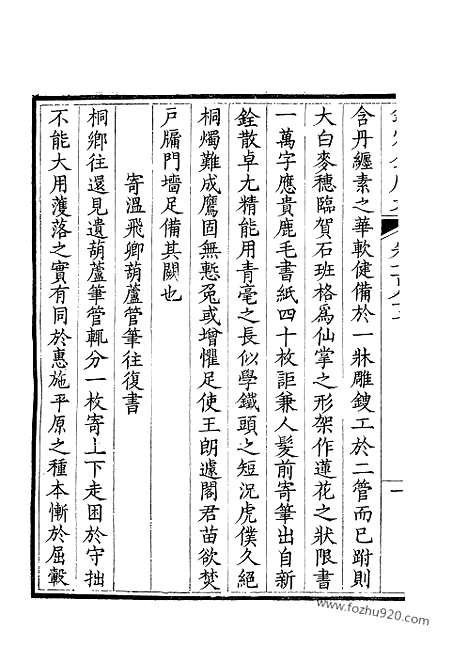 含丹纏素之華軟健備於一牀雕鎪工於二管而已跗則
大白麥穗臨賀石班格爲仙掌之形架作蓮花之狀限書
一萬字應貴鹿毛書紙四十枚詎兼人髮前寄筆出自新
銓散卓尤精能用青毫之長似學鐵頭之短況虎僕久絕
桐燭難成鷹固無慙兔或增懼足使王朗遽閣君苗欲焚
戸牖門墻足備其闕也
寄溫飛卿葫蘆管筆往復書
桐鄉往還見遺葫蘆筆管輒分一枚寄上下走困於守拙
不能大用濩落之實有同於惠施平原之種本慚於屈轂
www.fozhu920.com